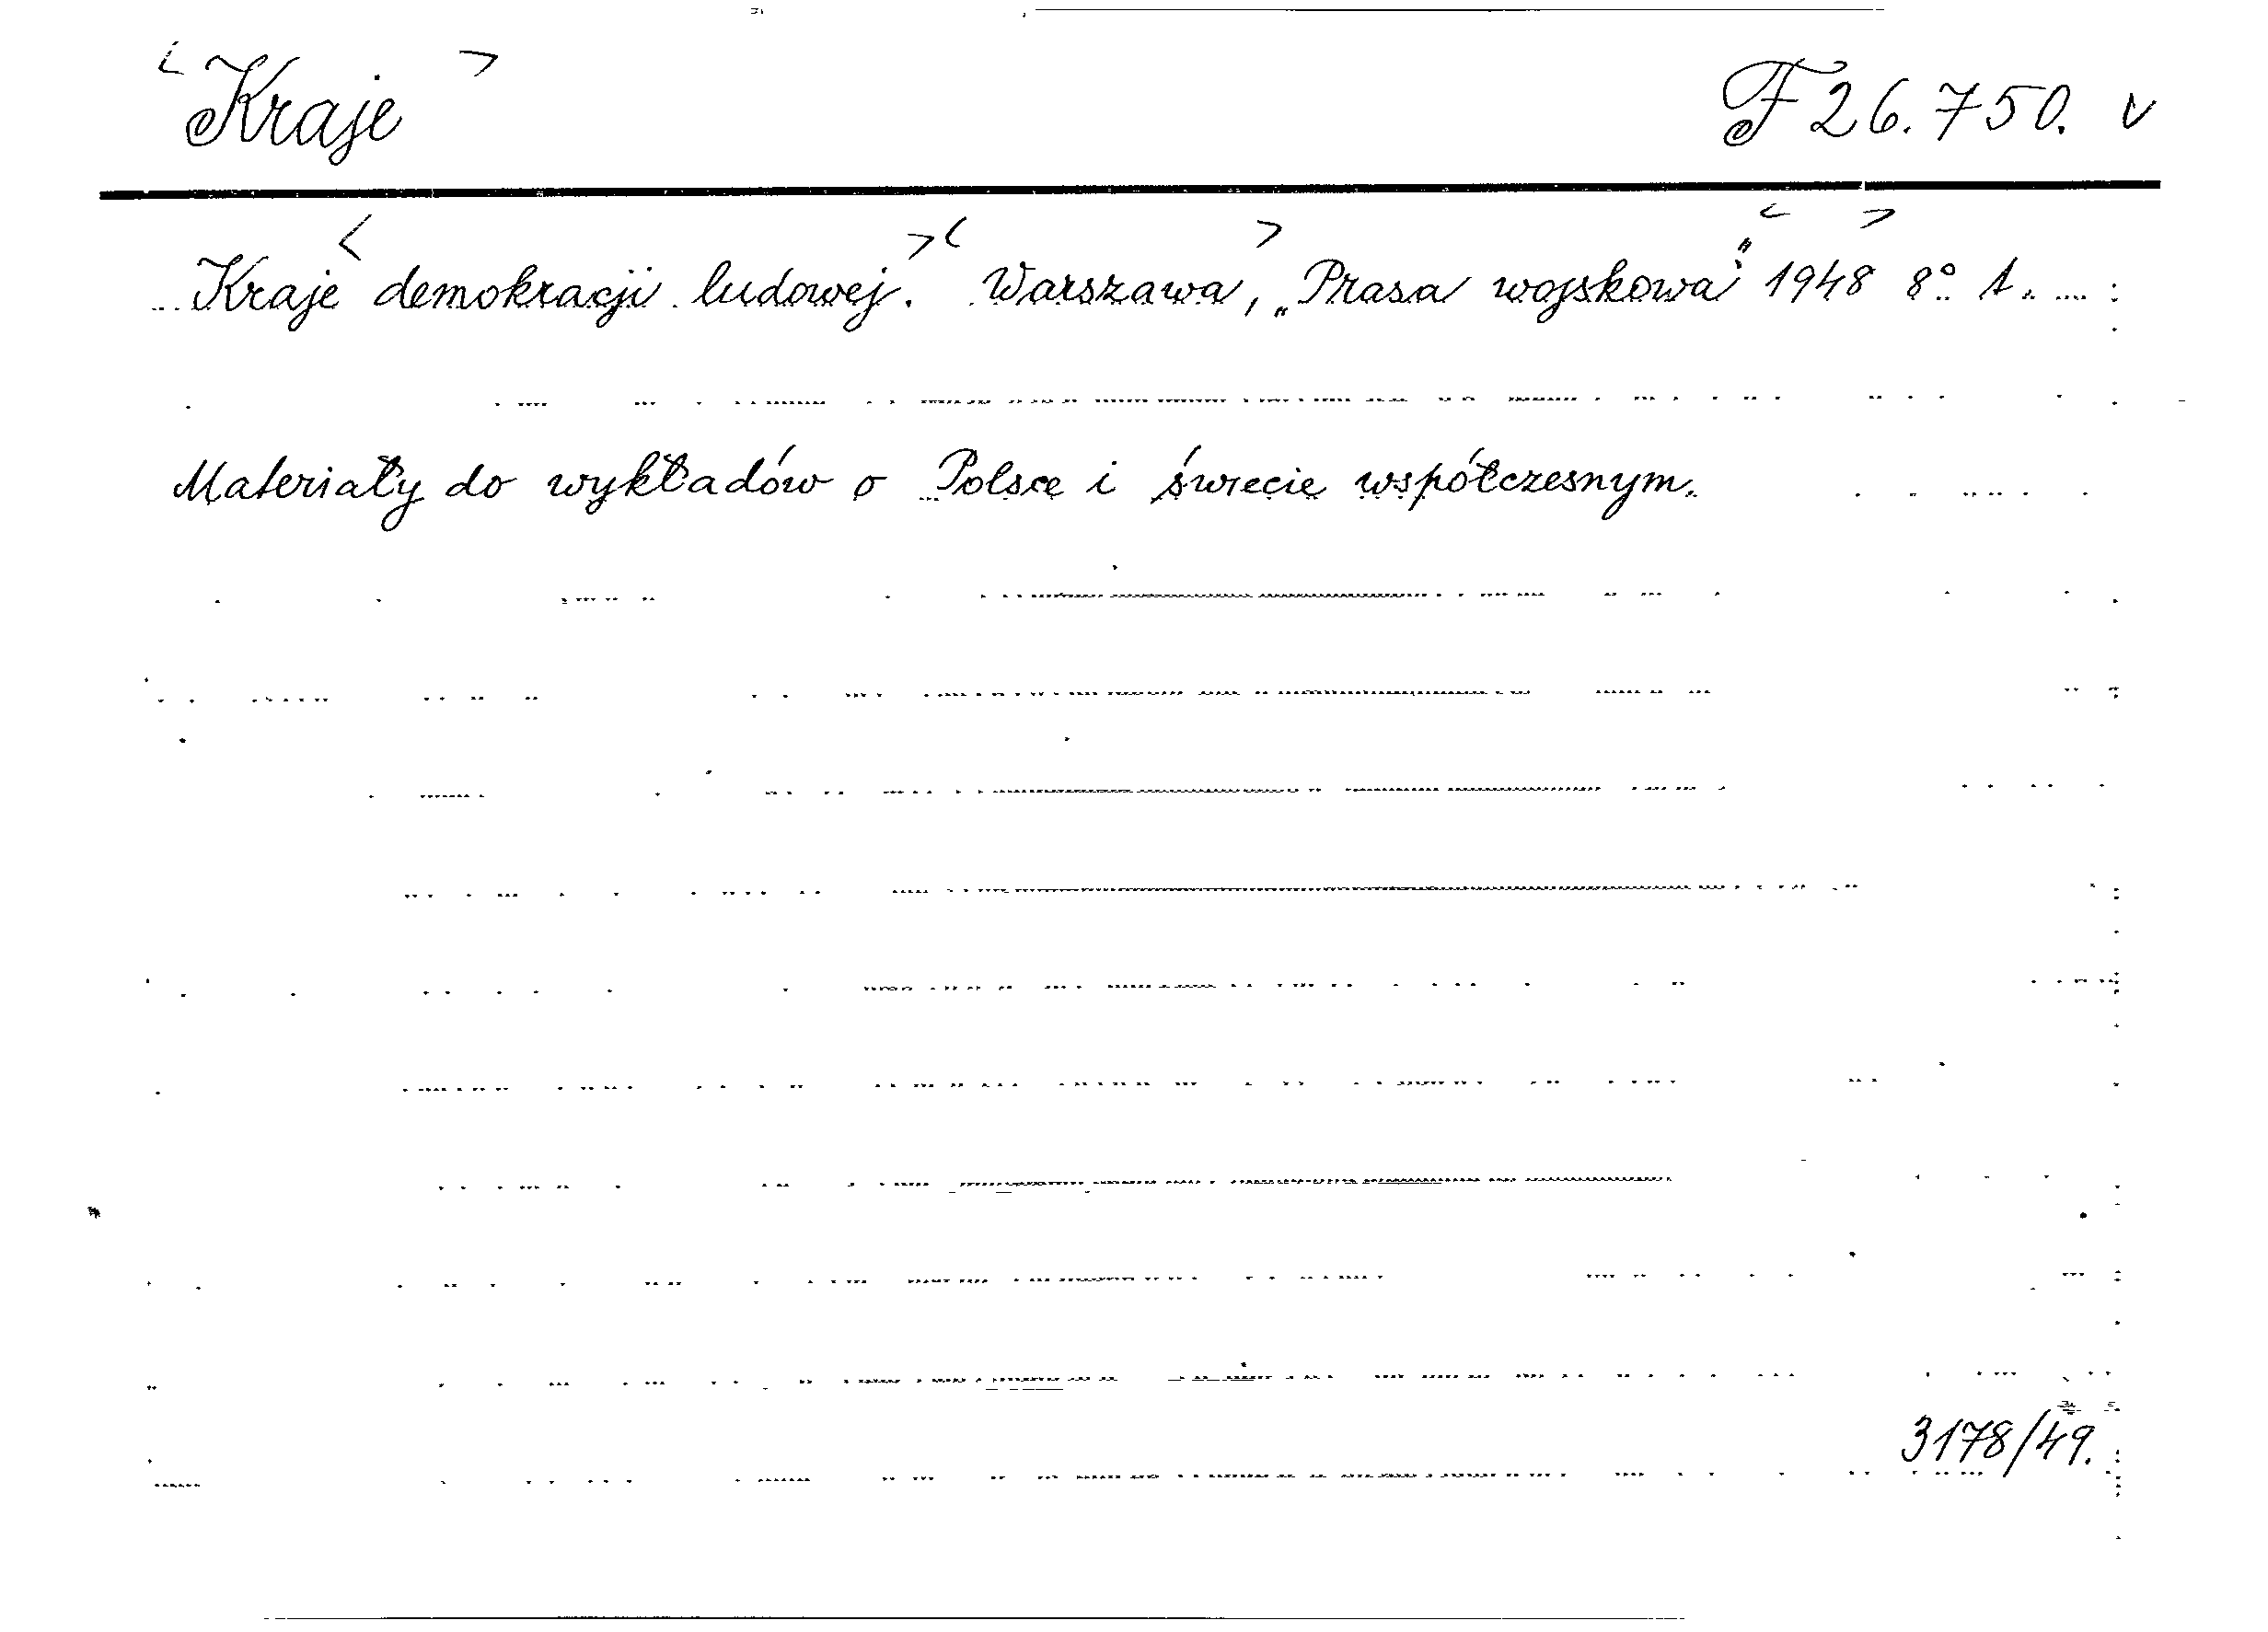 <Kraje> F 26.750. v
Kraje <demokracji ludowej.> <Warszawa>, „Prasa wojskowa" <1948> 8° 1.
Materiały do wykładów o Polsce i świecie współczesnym.
3178/49.